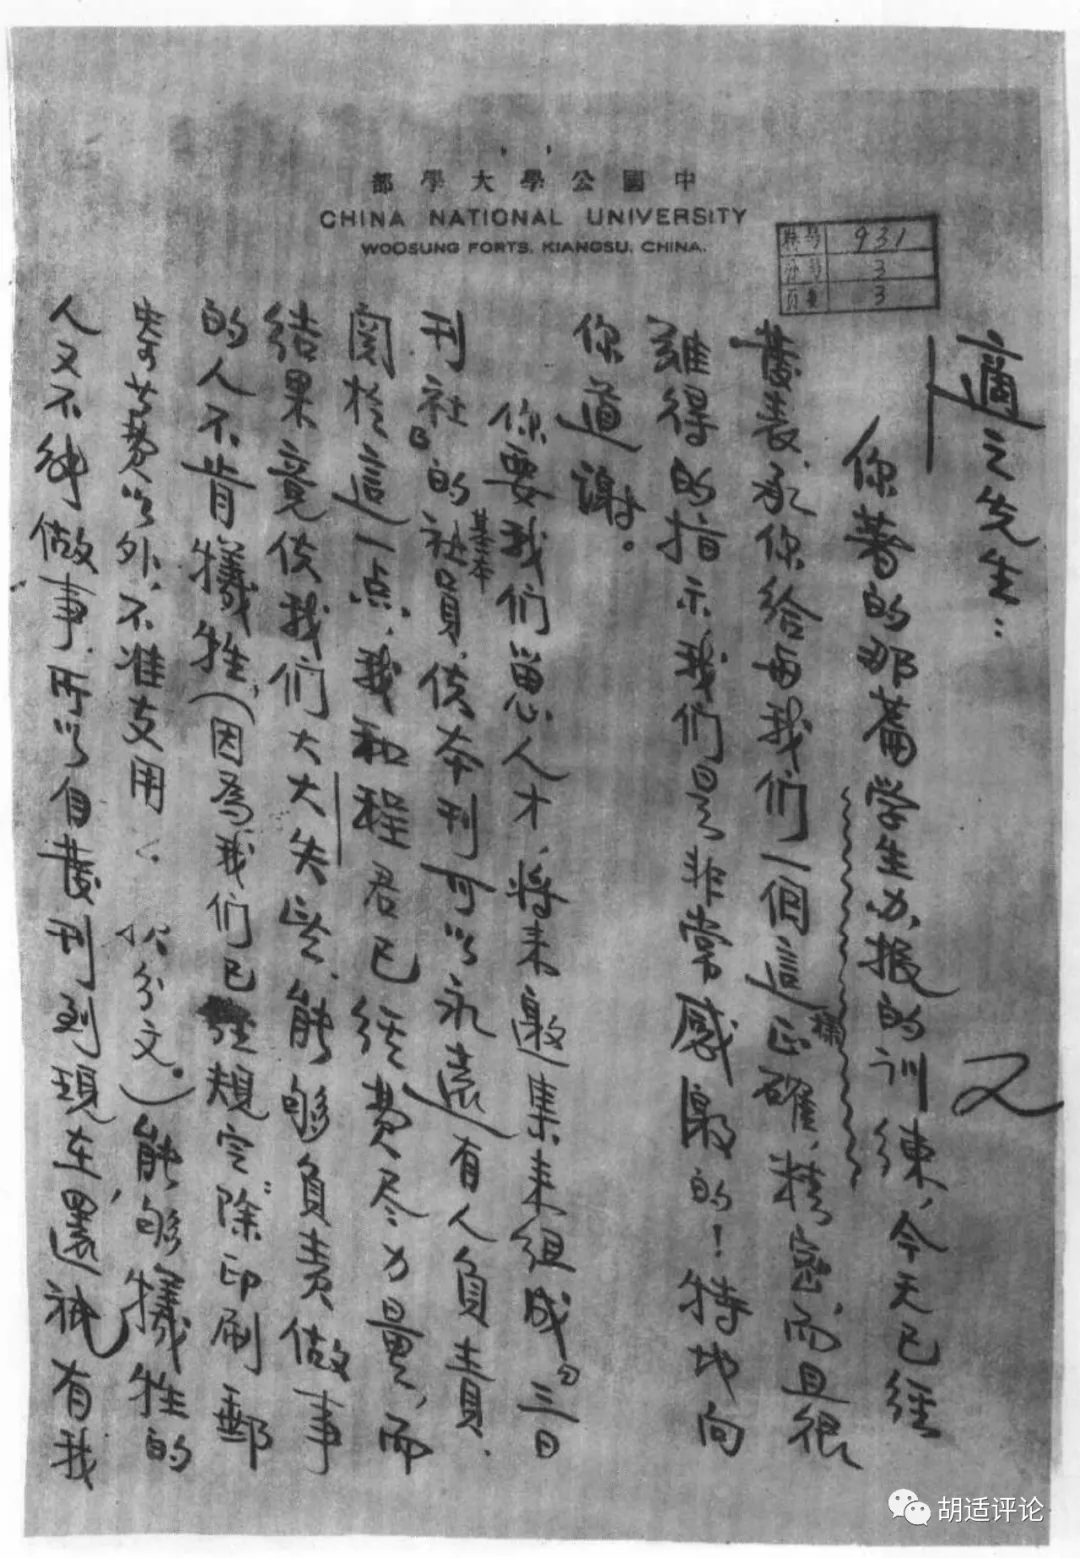 中國公學大學部
CHINA NATIONAL UNIVERSITY
WOOSUNG FORTS. KIANGSU, CHINA.
931
3
3
2
適之先生：
你著的那篇学生办报的训練，今天已經
發表，承你給每我们一個這正確，精密，而且很
難得的指示我们是非常感激的！特地向
你道謝。
你要我们留心人才，將来邀集来組成「三日
刊社」的基本社員，使本刊可以永遠有人負責．
関於這一点，我和程君已經费尽力量，而
結果竟使我们大大失望，能够負責做事
的人不肯犧牲，（因爲我们已經規定除印刷郵
費以外，不准支用分文。）能够犧牲的
人又不能做事，所以自發刊到現在，還祇有我
胡适评论